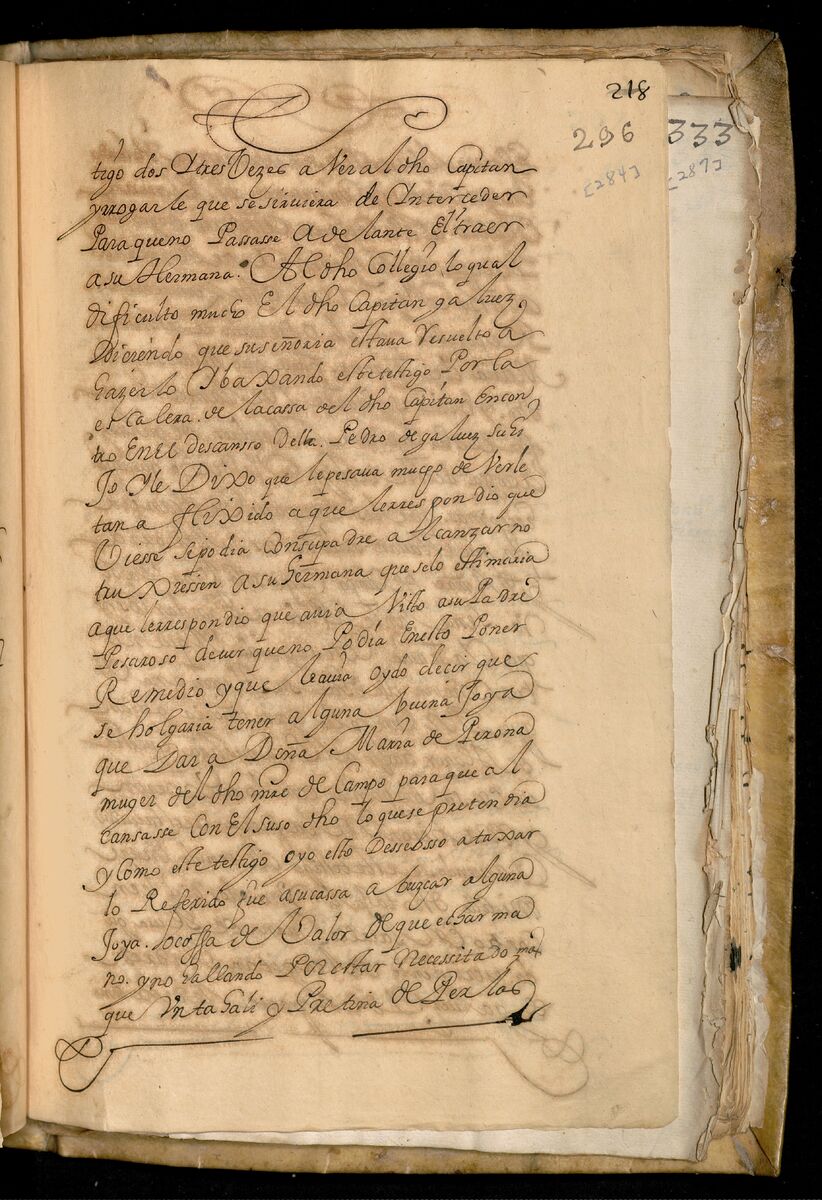 218
296 333
[284] [287]
tigo dos Ytres Vezes a Ver al dho Capitan
yrrogarle que se sirviera de Interceder
Para queno Passasse Adelante El traer
a su Hermana. Al dho Collegio lo qual
dificulto mucho El dho Capitan galuez,
Diciendo que su señoria estaua Resuelto a
hazerlo Ybaxando este testigo Por la
escalera. de la cassa del dho Capitan Encon
tro En El descansso della. Pedro de galuez su hi
Jo Yle Dixo que le pesaua mucho de Verle
tan aflixido a que lerrespondio que
Viesse sipodia Consupadre alcanzar no
truxessen a su hermana que selo estimaria
aque lerrespondio que auia Visto asu Padre
Pesaroso dever queno Podia Enesto Poner
Remedio yque leauia oydo decir que
se holgaria tener alguna buena Joya
que Dar a Doña Maria de Perona
muger del dho mre de Campo para que al
cansasse Con El suso dho lo que se pretendia
y Como este testigo oyo esto Desseosso ataxar
lo Referido fue asucassa a buzcar alguna
Joya. Ocossa de Valor de que echar ma
no. yno hallando Por estar Necessitado mas
que Vn tahali y Pretina de Perlas